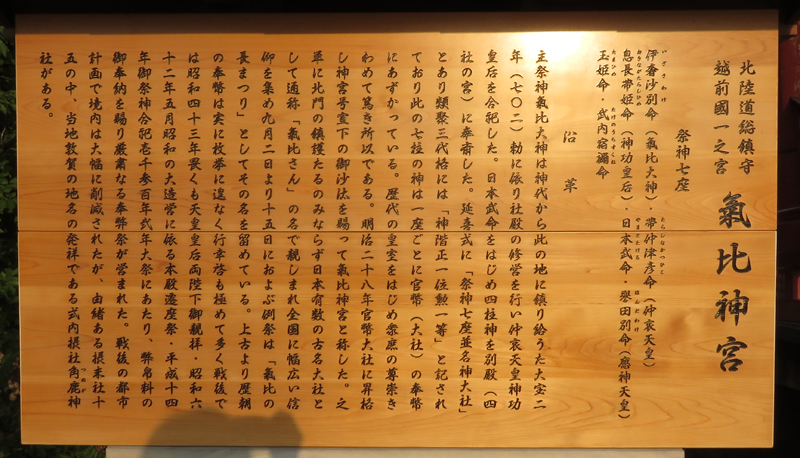 北陸道総鎮守
越前國一之宮
氣比神宮
祭神七座
伊奢沙別命(氣比大神)・帶仲津彦命(仲哀天皇)
いざさわけ
たらしなかつひこ
息長帶姫命(神功皇后)・日本武命・誉田別命(應神天皇)
おきながたらしひめ
やまとたける
ほんだわけ
玉姫命・武内宿禰命
たまひめ
たけのうちすくね
沿革
主祭神氣比大神は神代から此の地に鎮り給うた大宝二
年(七〇二)勅に依り社殿の修営を行い仲哀天皇神功
皇后を合祀した。日本武命をはじめ四柱神を別殿(四
社の宮)に奉斎した。延喜式に「祭神七座並名神大社」
とあり類聚三代格には「神階正一位勲一等」と記され
ており此の七柱の神は一座ごとに官幣(大社)の奉幣
にあずかっている。歴代の皇室をはじめ衆庶の尊崇き
わめて篤き所以である。明治二十八年官幣大社に昇格
し神宮号宣下の御沙汰を賜って氣比神宮と称した。之
單に北門の鎮護たるのみならず日本有数の古名大社と
して通称「氣比さん」の名で親しまれ全国に幅広い信
仰を集め九月二日より十五日におよぶ例祭は「氣比の
長まつり」としてその名を留めている。上古より歴朝
の奉幣は実に枚挙に遑なく行幸啓も極めて多く戦後で
は昭和四十三年畏くも天皇皇后両陛下御親拝・昭和六
十二年五月昭和の大造営に依る本殿遷座祭・平成十四
年御祭神合祀壱千参百年式年大祭にあたり、幣帛料の
御奉納を賜り厳粛なる奉幣祭が営まれた。戦後の都市
計画で境内は大幅に削減されたが、由緒ある摂末社十
五の中、当地敦賀の地名の発祥である式内摂社角鹿神
つぬが
社がある。